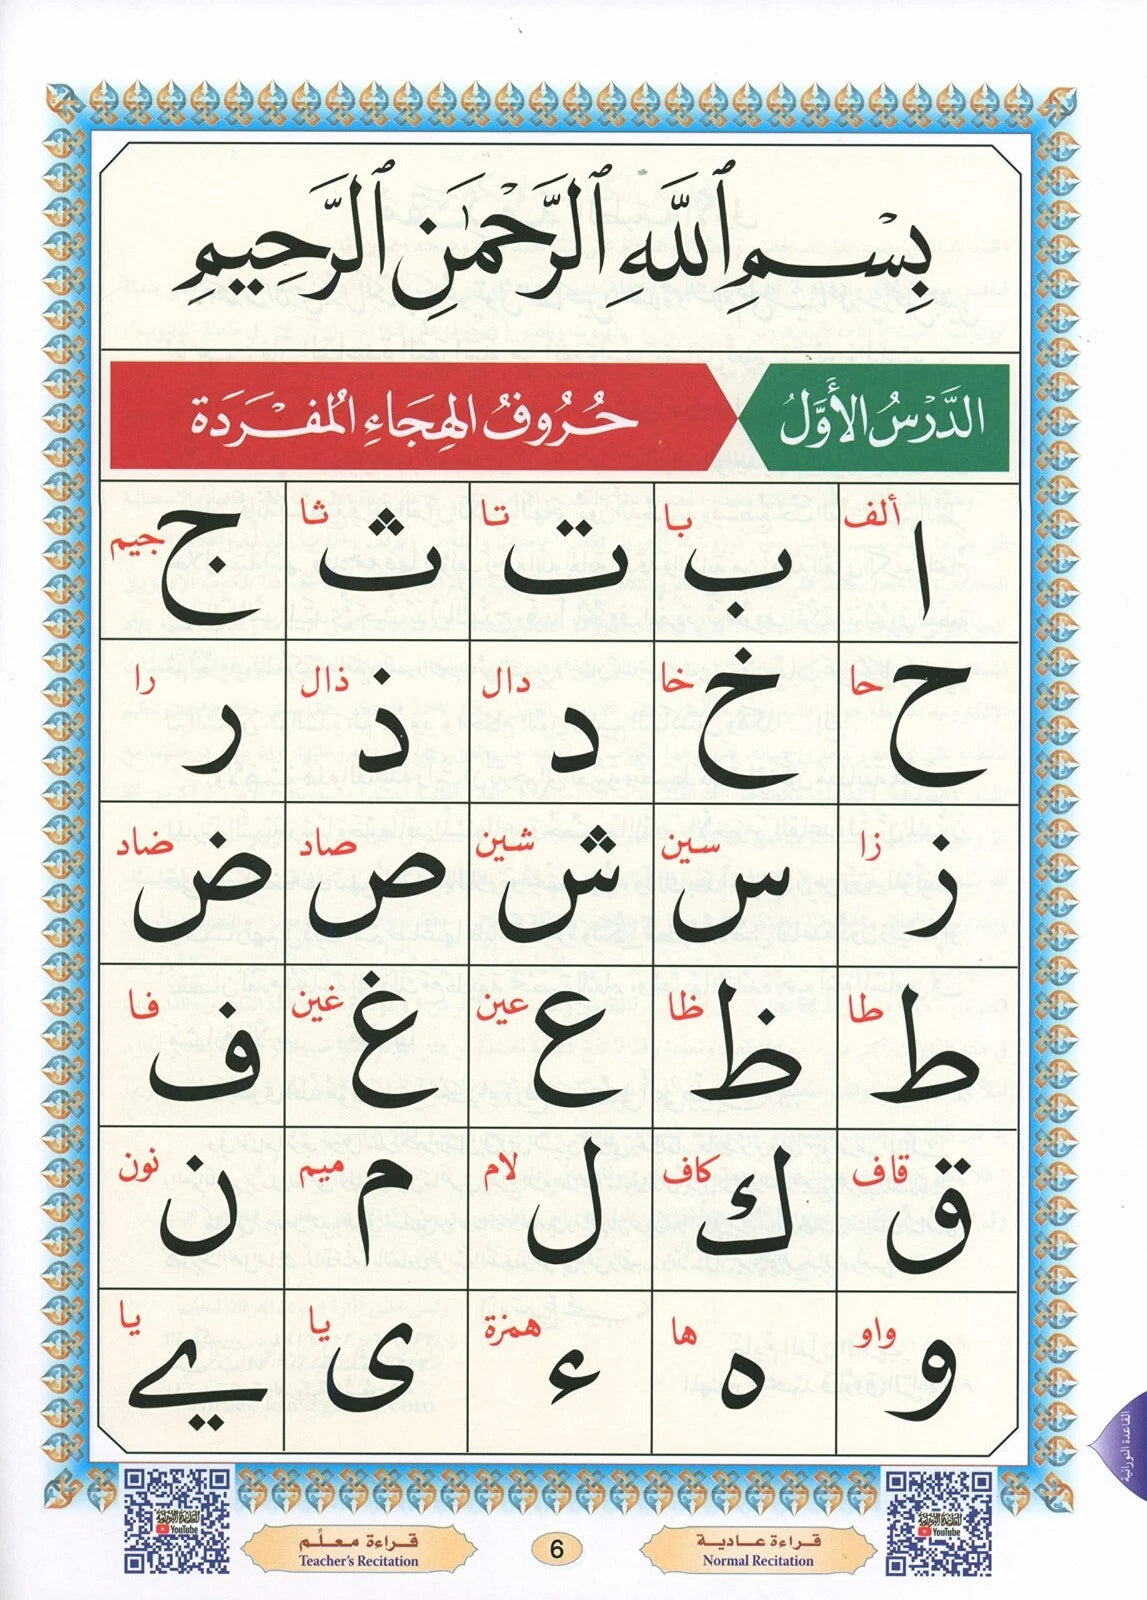 بِسْمِ ٱللَّهِ ٱلرَّحْمَٰنِ ٱلرَّحِيمِ
الدَّرْسُ الأَوَّلُ حُرُوفُ الهِجَاءِ المُفْرَدَة
ألف ا با ب تا ت ثا ث جيم ج
حا ح خا خ دال د ذال ذ را ر
زا ز سين س شين ش صاد ص ضاد ض
طا ط ظا ظ عين ع غين غ فا ف
قاف ق كاف ك لام ل ميم م نون ن
واو و ها ه همزة ء يا ى يا ے
القاعدة النورانية
القاعدة النورانية
YouTube
القاعدة النورانية
YouTube
قراءة عادية
Normal Recitation
6
قراءة معلّم
Teacher's Recitation